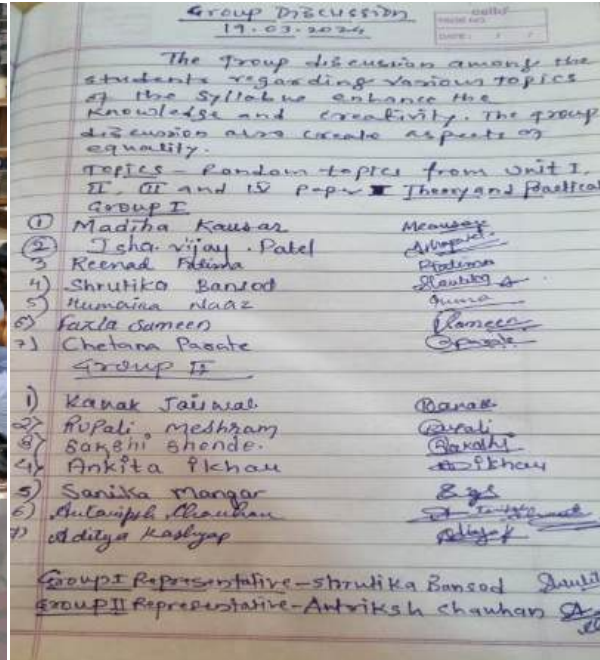 Group Discussion
19.03.2024
PAGE NO.
DATE: / /
The group discussion among the
students regarding various topics
of the Syllabus enhance the
Knowledge and creativity. The group
discussion also create aspects of
equality.
Topics - Random topics from Unit I,
II, III and IV Paper I Theory and Practical
Group I
1) Madiha Kausar
2) Isha. Vijay. Patel
3 Reenad Fatima Rfatima
4) Shrutika Bansod
5) Humaira Naaz
6) Fazla Sameen
7) Chetana Parate
Group II
1) Kanak Jaiswal Kanak
2) Rupali Meshram Rupali
3) Sakshi Shende. Sakshi
4) Ankita Ikhau Ikhau
5) Sanika Mangar
6) Antriksh Chauhan
7) Aditya Kashyap
Group I Representative - Shrutika Bansod
Group II Representative - Antriksh Chauhan